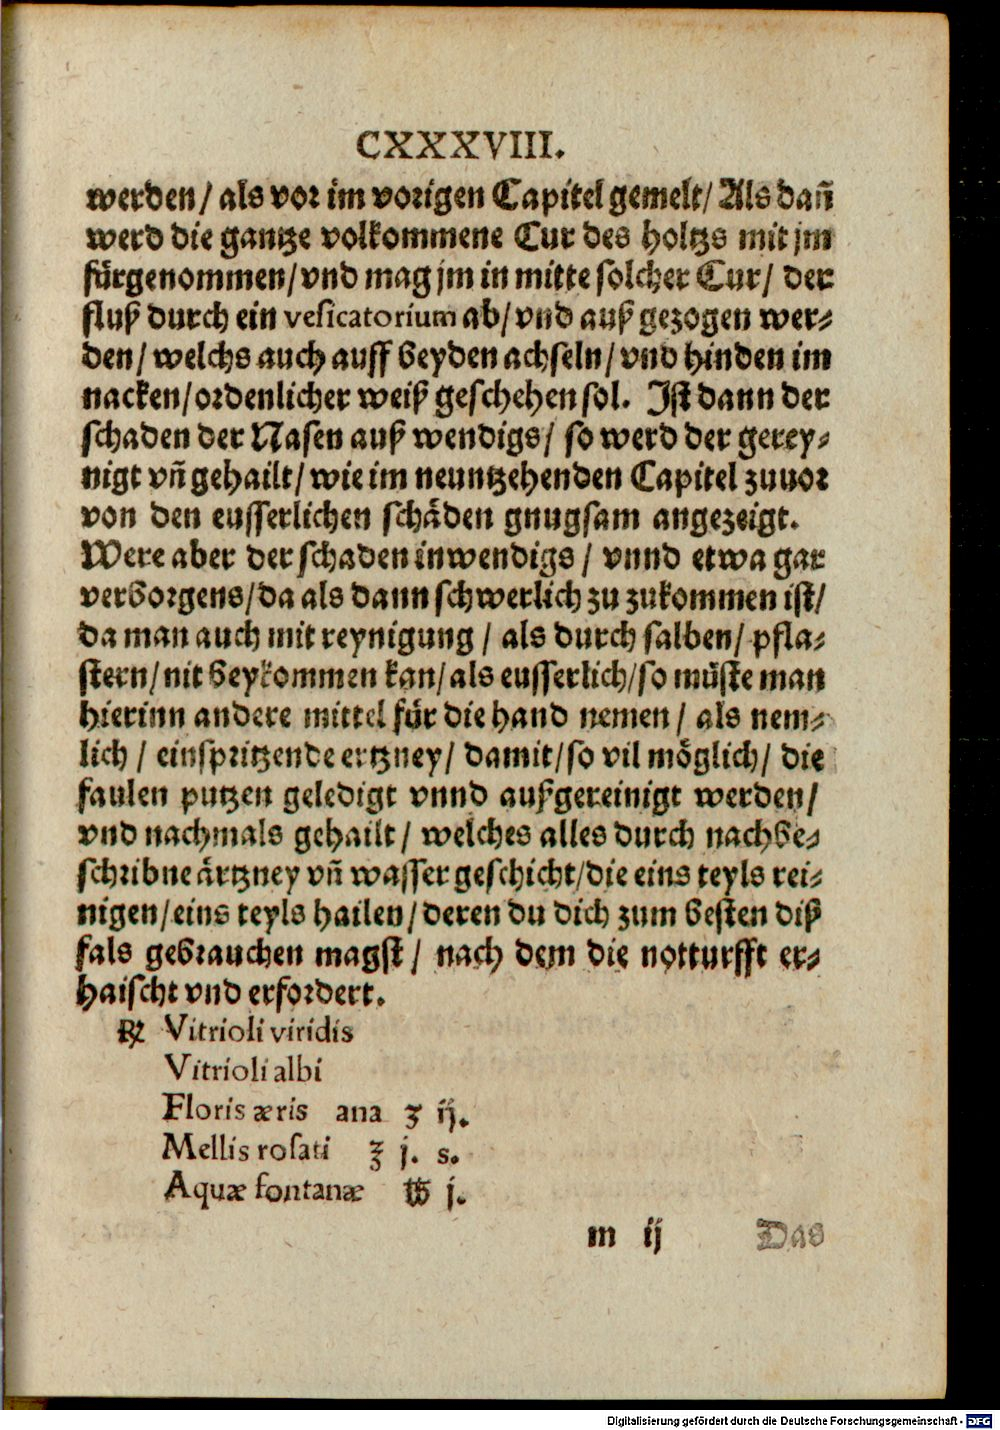 CXXXVIII.
werden / als vor im vorigen Capitel gemelt / Als dañ
werd die gantze volkommene Cur des holtzs mit jm
fürgenommen / vnd mag jm in mitte solcher Cur / der
fluß durch ein vesicatorium ab / vnd auß gezogen wer⸗
den / welchs auch auff beyden achseln / vnd hinden im
nacken / ordenlicher weiß geschehen sol. Ist dann der
schaden der Nasen auß wendigs / so werd der gerey⸗
nigt vñ gehailt / wie im neuntzehenden Capitel zuuor
von den eusserlichen schäden gnugsam angezeigt.
Were aber der schaden inwendigs / vnnd etwa gar
verborgens / da als dann schwerlich zu zukommen ist /
da man auch mit reynigung / als durch salben / pfla⸗
stern / nit beykommen kan / als eusserlich / so müste man
hierinn andere mittel für die hand nemen / als nem⸗
lich / einspritzende ertzney / damit / so vil möglich / die
faulen putzen geledigt vnnd außgereinigt werden /
vnd nachmals gehailt / welches alles durch nachbe⸗
schribne ärtzney vñ wasser geschicht / die eins teyls rei⸗
nigen / eins teyls hailen / deren du dich zum besten diß
fals gebrauchen magst / nach dem die notturfft er⸗
haischt vnd erfordert.
℞ Vitrioli viridis
Vitrioli albi
Floris æris ana ʒ ij.
Mellis rosati ℥ j. s.
Aquæ fontanæ ℔ j.
m ij Das
Digitalisierung gefördert durch die Deutsche Forschungsgemeinschaft - DFG